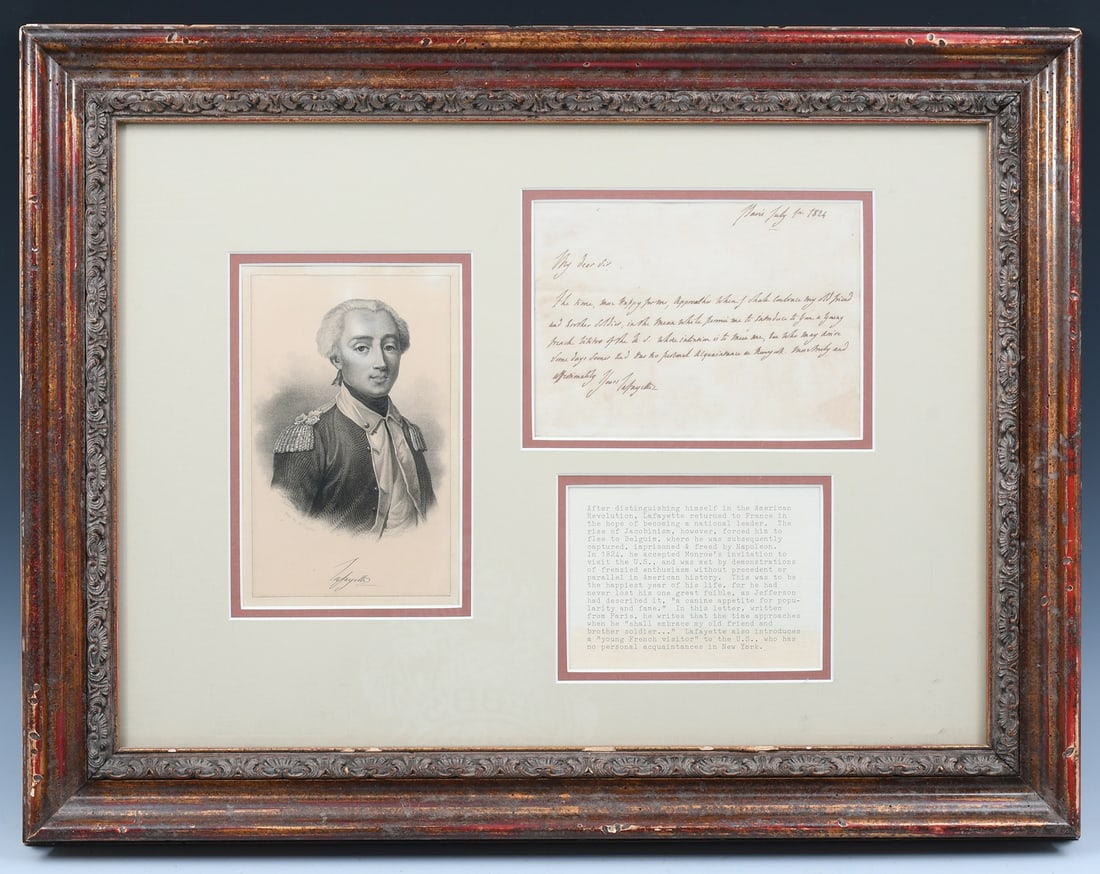 Lafayette
Paris July 1st 1824
My dear Sir
The time, most happy for me, approaches when I shall embrace my old friend
and brother soldier, in the mean while permit me to introduce to you a young
french visitor of the U. S. whose intention is to meet me, but who may arrive
some days sooner and has no personal acquaintance at Newyork. Most truly and
affectionately Yours Lafayette
After distinguishing himself in the American
Revolution, Lafayette returned to France in
the hope of becoming a national leader. The
rise of Jacobinism, however, forced him to
flee to Belguim, where he was subsequently
captured, imprisoned & freed by Napoleon.
In 1824, he accepted Monroe's invitation to
visit the U.S., and was met by demonstrations
of frenzied enthusiasm without precedent or
parallel in American history. This was to be
the happiest year of his life, for he had
never lost his one great foible, as Jefferson
had described it, "a canine appetite for popu-
larity and fame." In this letter, written
from Paris, he writes that the time approaches
when he "shall embrace my old friend and
brother soldier..." Lafayette also introduces
a "young French visitor" to the U.S., who has
no personal acquaintances in New York.